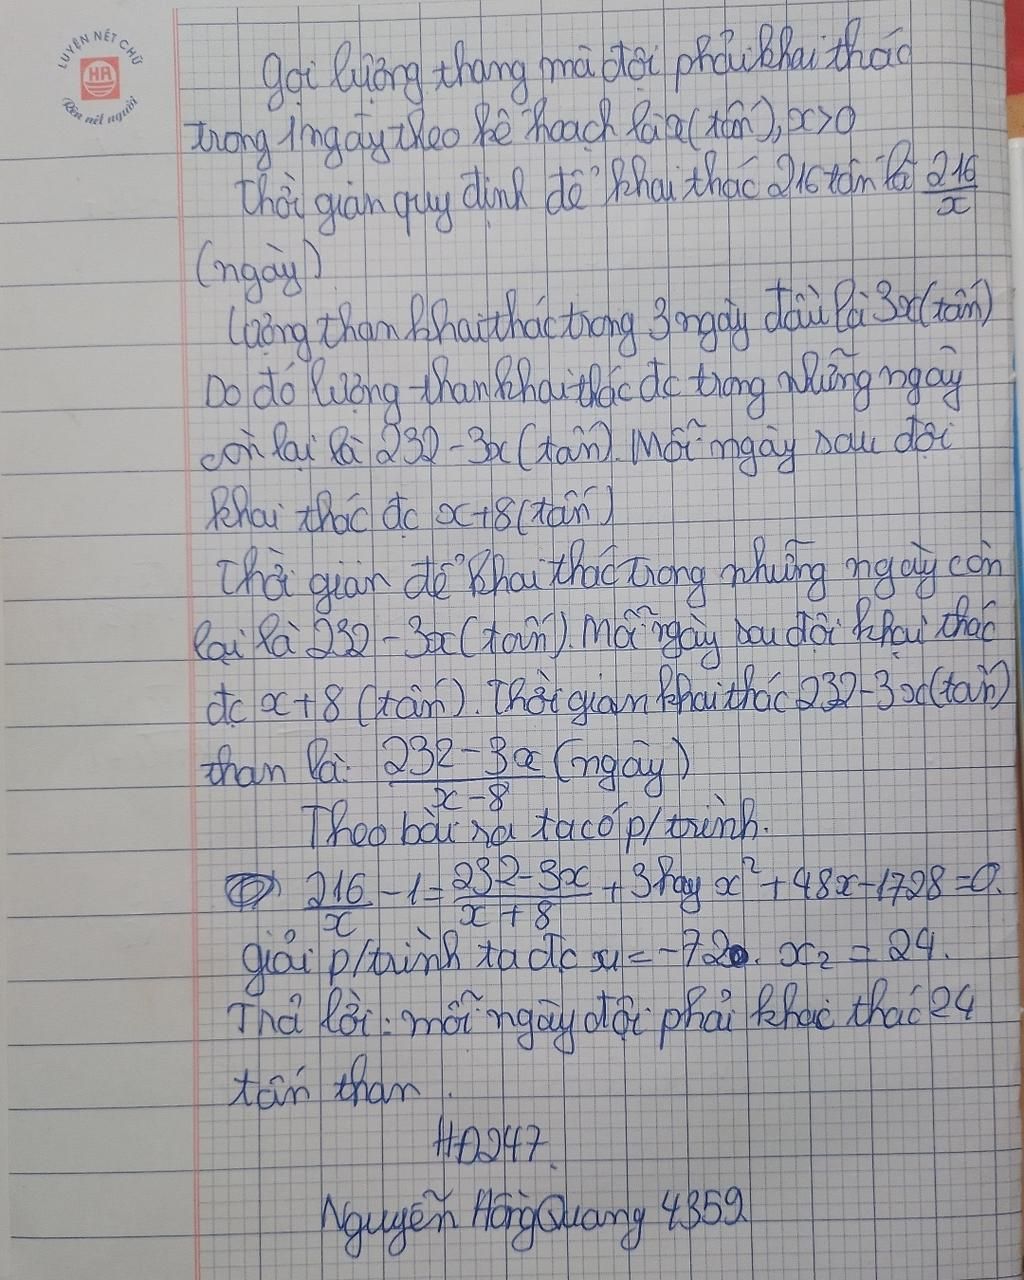 LUYỆN NÉT CHỮ
HA
Rèn nết người
Gọi lượng thang mà đội phải khai thác
trong 1 ngày theo kế hoạch là x (tấn), x>0
Thời gian quy định để khai thác 216 tấn là 216/x
(ngày)
Lượng than khai thác trong 3 ngày đầu là 3x (tấn)
Do đó lượng than khai thác đc trong những ngày
còn lại là 232 - 3x (tấn). Mỗi ngày sau đội
khai thác đc x+8 (tấn)
Thời gian để khai thác trong những ngày còn
lại là 232 - 3x (tấn). Mỗi ngày sau đội khai thác
đc x+8 (tấn). Thời gian khai thác 232-3x (tấn)
than là: (232-3x)/(x-8) (ngày)
Theo bài ra ta có p/trình.
216/x - 1 = (232-3x)/(x+8) + 3 hay x² + 48x - 1728 = 0.
giải p/trình ta đc x₁ = -72. x₂ = 24.
Trả lời: mỗi ngày đội phải khai thác 24
tấn than.
HD247.
Nguyễn Hồng Quang 4359